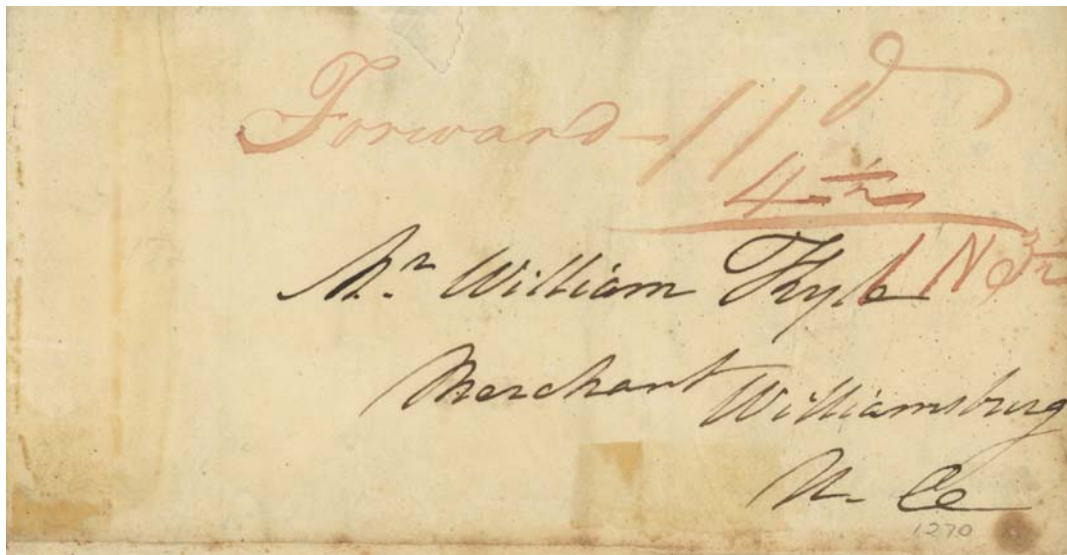 Forward - 11d
4½
1 N 3½
Mr. William Kyle
Merchant Williamsburg
U. Ca
1270